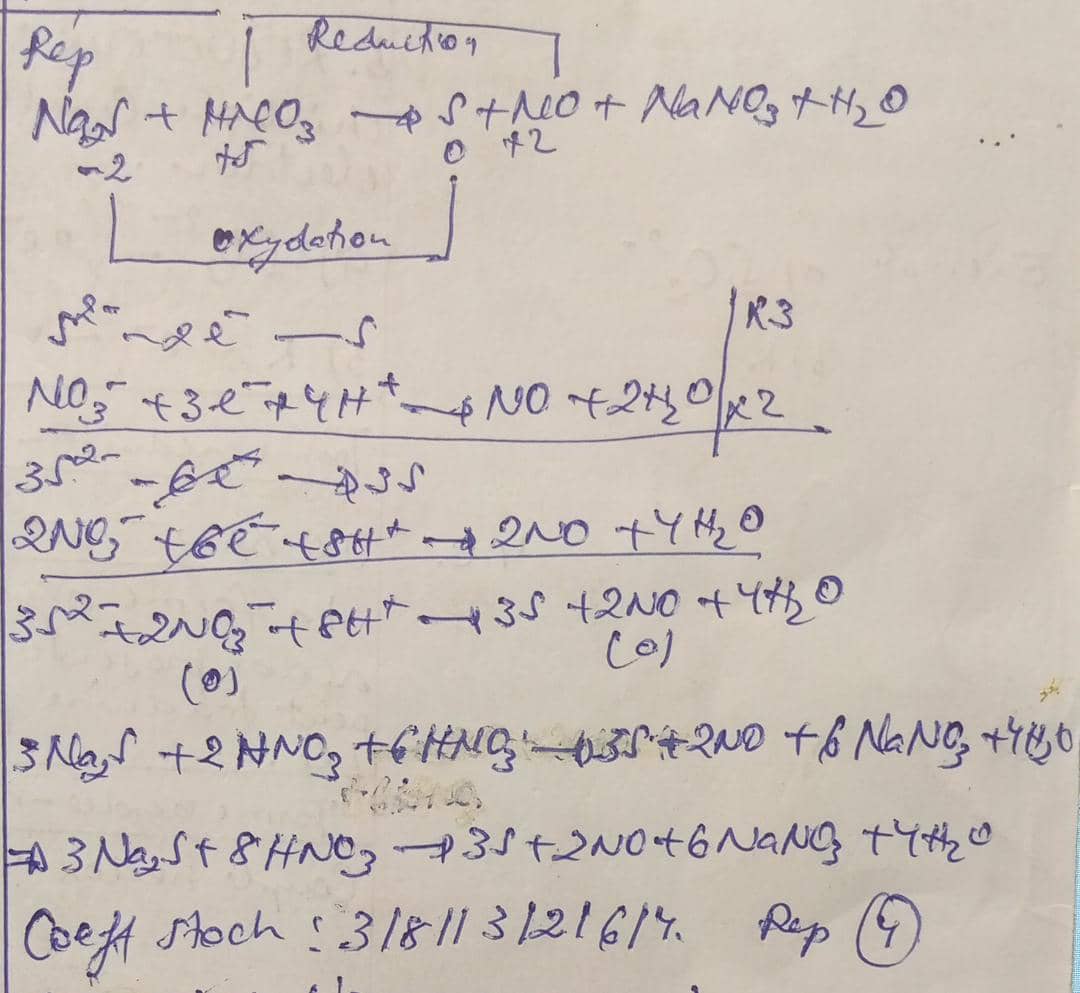 Rép
Reduction
Na₂S + HNO₃ → S + NO + NaNO₃ + H₂O
-2 +5 0 +2
oxydation
S²⁻ - 2e⁻ — S | x3
NO₃⁻ + 3e⁻ + 4H⁺ → NO + 2H₂O | x2
3S²⁻ - 6e⁻ → 3S
2NO₃⁻ + 6e⁻ + 8H⁺ → 2NO + 4H₂O
3S²⁻ + 2NO₃⁻ + 8H⁺ → 3S + 2NO + 4H₂O
(0) (0)
3Na₂S + 2HNO₃ + 6HNO₃ → 3S + 2NO + 6NaNO₃ + 4H₂O
⇒ 3Na₂S + 8HNO₃ → 3S + 2NO + 6NaNO₃ + 4H₂O
Coefft stoch : 3/8//3/2/6/4. Rep 4